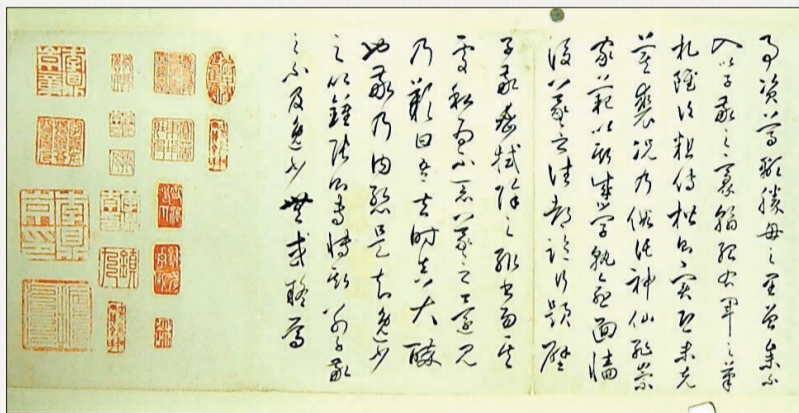 事資尊顯勝母之里曾參不
入以子敬之豪翰紹右軍之筆
札雖復粗傳楷則實恐未克
箕裘況乃假託神仙恥崇
家範以斯成學孰愈面牆
後羲之往都臨行題壁
子敬密拭除之輒書易其
處私為不惡羲之還見
乃歎曰吾去時真大醉
也敬乃內慚是知逸少
之比鍾張則專博斯別子敬
之不及逸少無或疑焉